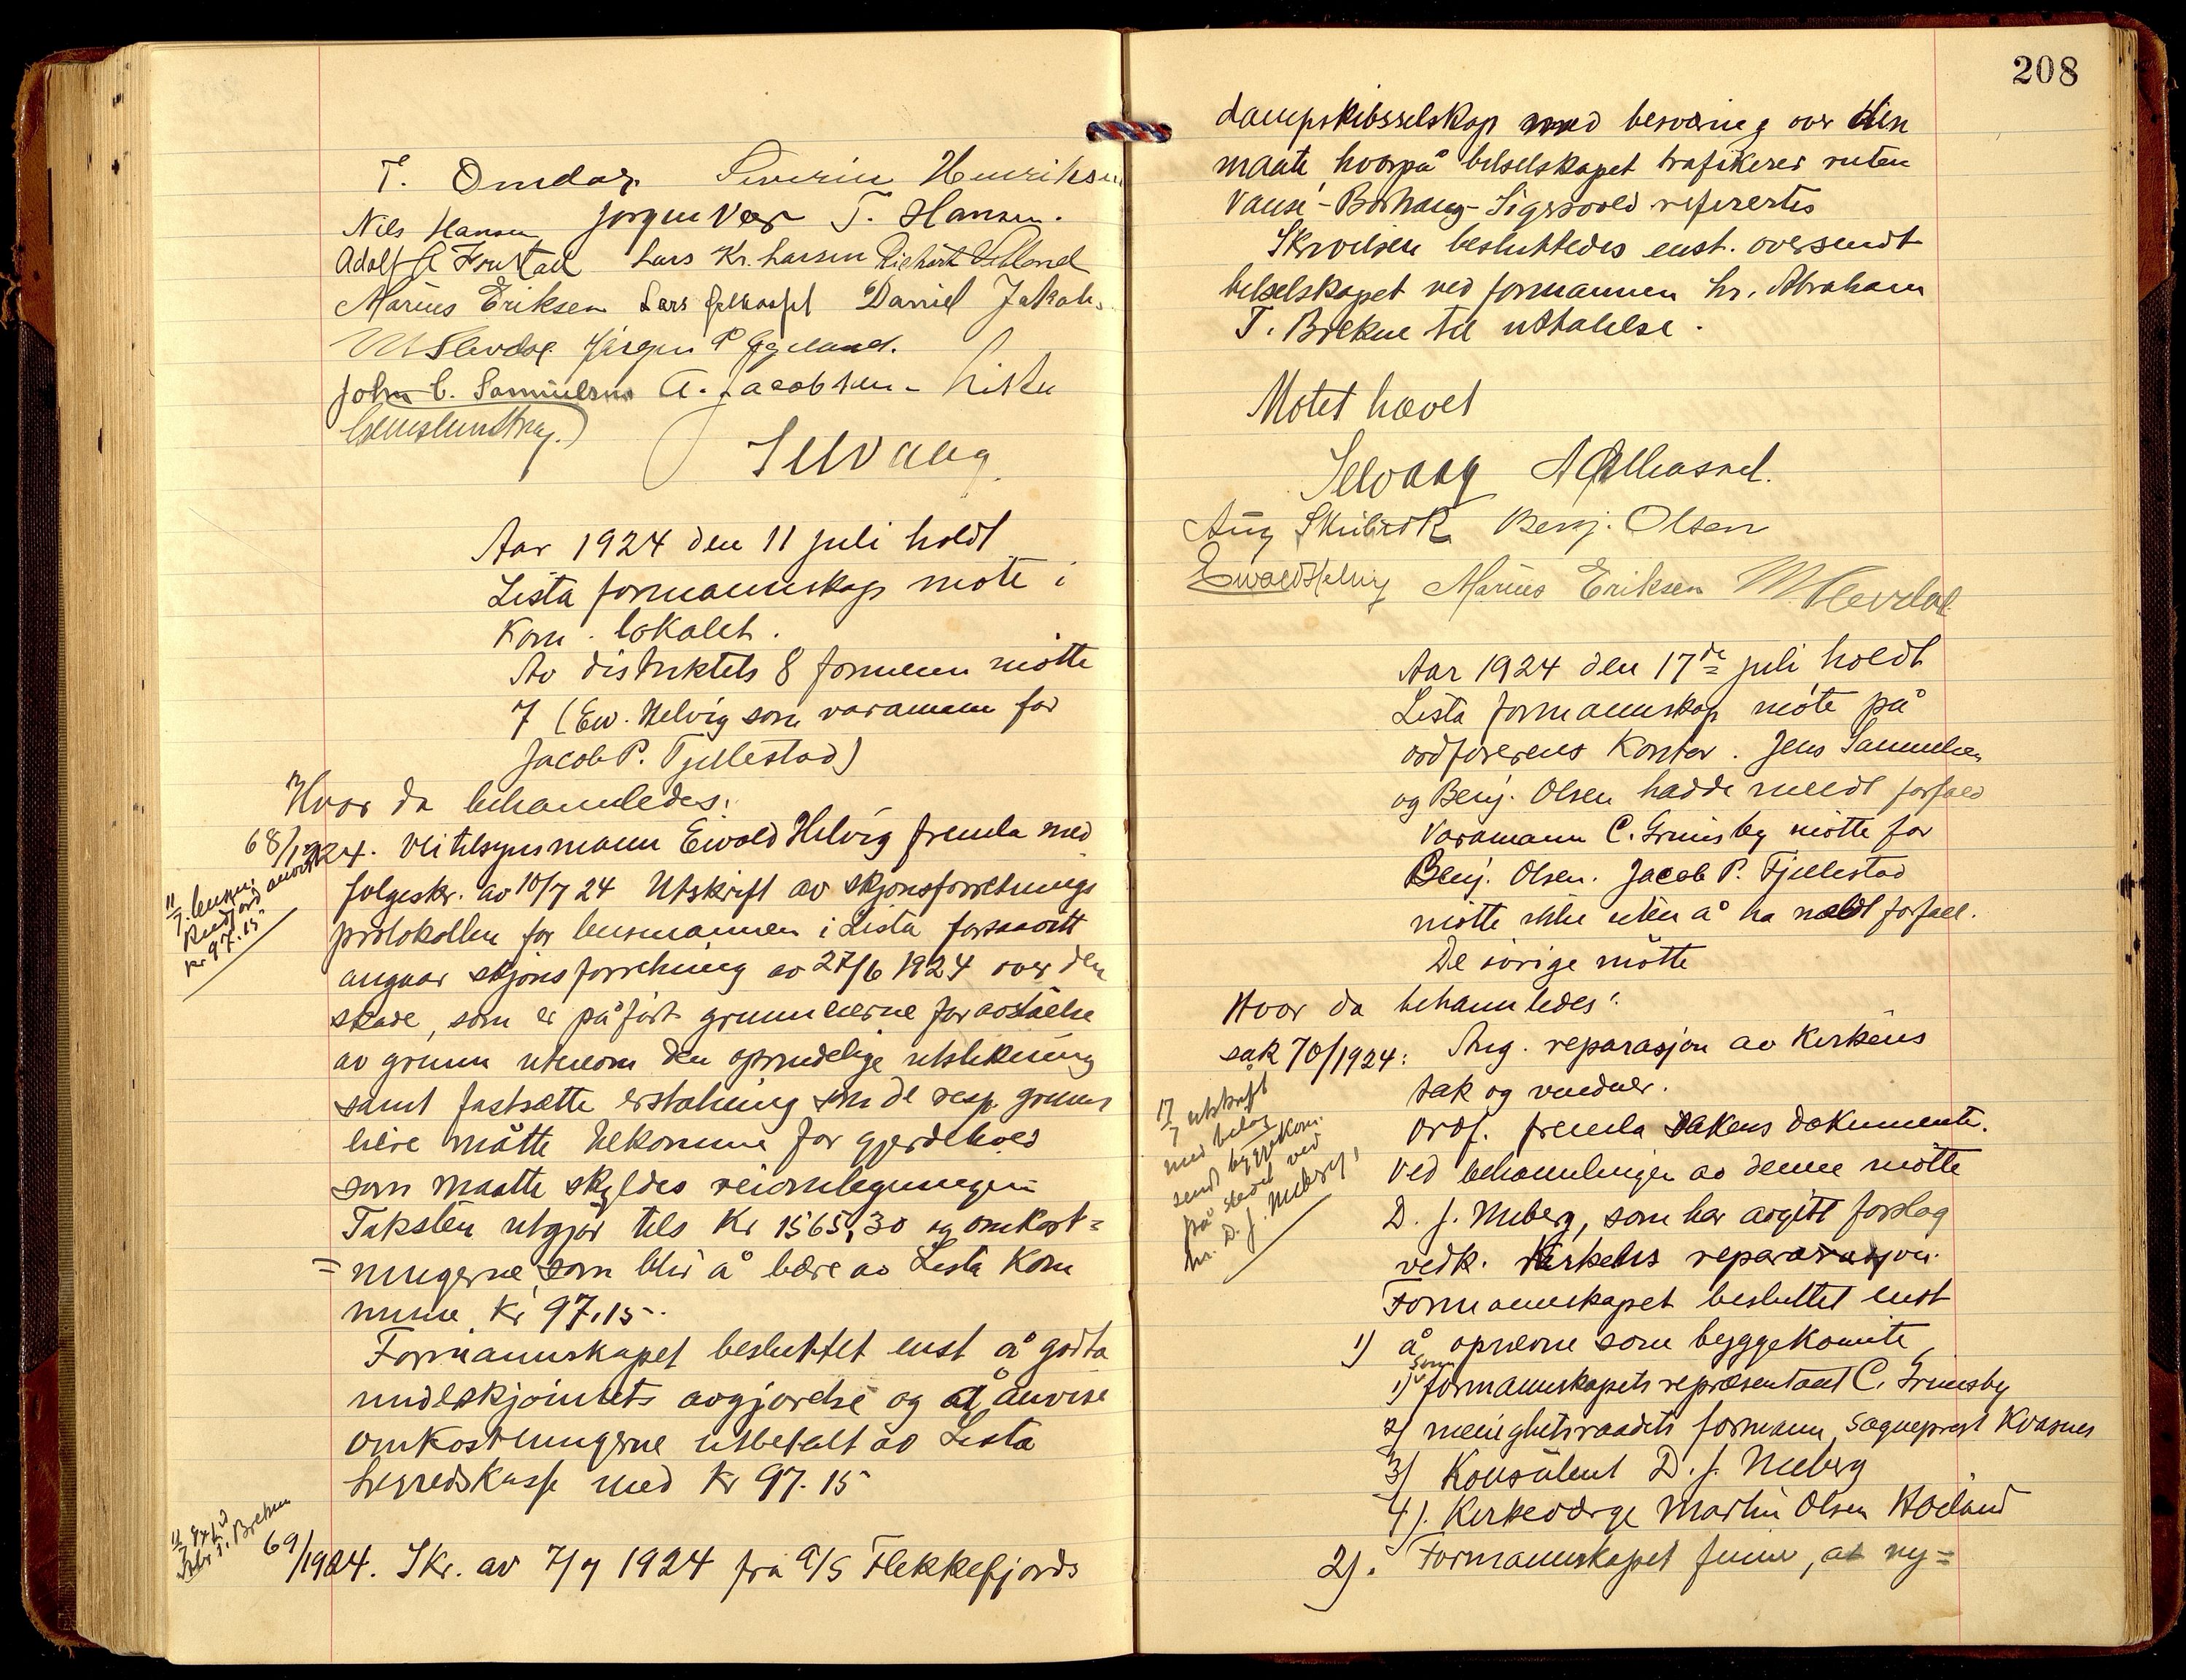 T. Omdar. Severin Henriksen
Nils Hansen Jörgen Ver T. Hansen.
Adolf A Frustad Lars Kr. Larsen Richart
Marius Eriksen Lars Daniel Jakobs.
M Slevdal Jörgen P Jgeland.
John C. Samuelsen A. Jacobsen - Lista
Selvaag
Aar 1924 den 11 juli holdt
Lista formannskap møte i
Kom. lokalet.
Av distriktets 8 formenn møtte
7 (Ew. Helvig som varamann for
Jacob P. Tjellestad)
Hvor da behannledes:
68/1924. Veitilsynsmann Eivald Helvig fremla med
følgeskr. av 10/7 24 Utskrift av skjønsforretnings
protokollen for lensmannen i Lista forsaavitt
angaar skjønsforretning av 27/6 1924 over den
skade, som er påført grunneierne for avståelse
av grunn utenom den oprindelige utstikning
samt fastsætte erstatning som de resp. grunn
eiere måtte tilkomme for gjerdehold
som maatte skyldes veiomlegningen
Taksten utgjør tils Kr 1565,30 og omkost=
=ningerne, som blir å bære av Lista Kom
mune, Kr 97.15.
Formannskapet besluttet enst å godta
underskjønnets avgjørelse og å anvise
omkostningerne utbetalt av Lista
herredskasse med Kr 97.15
11/7 lensm.
Rudjord anvist
Kr 97.15
11/7 Exp
Abr T. Brekne
69/1924. Skr. av 7/7 1924 fra A/S Flekkefjords
208
dampskibsselskap med besværing over den
maate, hvorpå bilselskapet trafikerer ruten
Vanse-Borhaug-Sigersvold refereres
Skrivelsen besluttedes enst. oversendt
bilselskapet ved formannen hr. Abraham
T. Brekne til uttalelse.
Møtet hævet
Selvaag
Aug Skeibrok Benj. Olsen
Ewald Helvig Marius Eriksen M Slevdal
Aar 1924 den 17de juli holdt
Lista formannskap møte på
ordførerens Kontor. Jens Samuelsen
og Benj. Olsen hadde meldt forfald
Varamann C. Grimsby møtte for
Benj. Olsen. Jacob P. Tjellestad
møtte ikke uten å ha meldt forfall.
De øvrige møtte
Hvor da behannledes:
sak 70/1924: Ang. reparasjon av Kirkens
tak og vinduer.
Ordf. fremla sakens dokumenter.
Ved behannlingen av denne møtte
D. J. Muberg, som har avgitt forslag
vedk. kirkens reparasjon.
17/7 utskrift
med bilag
sendt byggekom.
på stedet ved
hr. D. J. Muberg,
Formannskapet besluttet enst
1) å opnevne som byggekomite
1) som formannskapets repræsentant C. Grimsby
2) menighetsraadets formann, sogneprest Kvasnes
3) Konsulent D. J. Muberg
4). Kirkeværge Martin Olsen Hæland
2). Formannskapet finner, at ny=